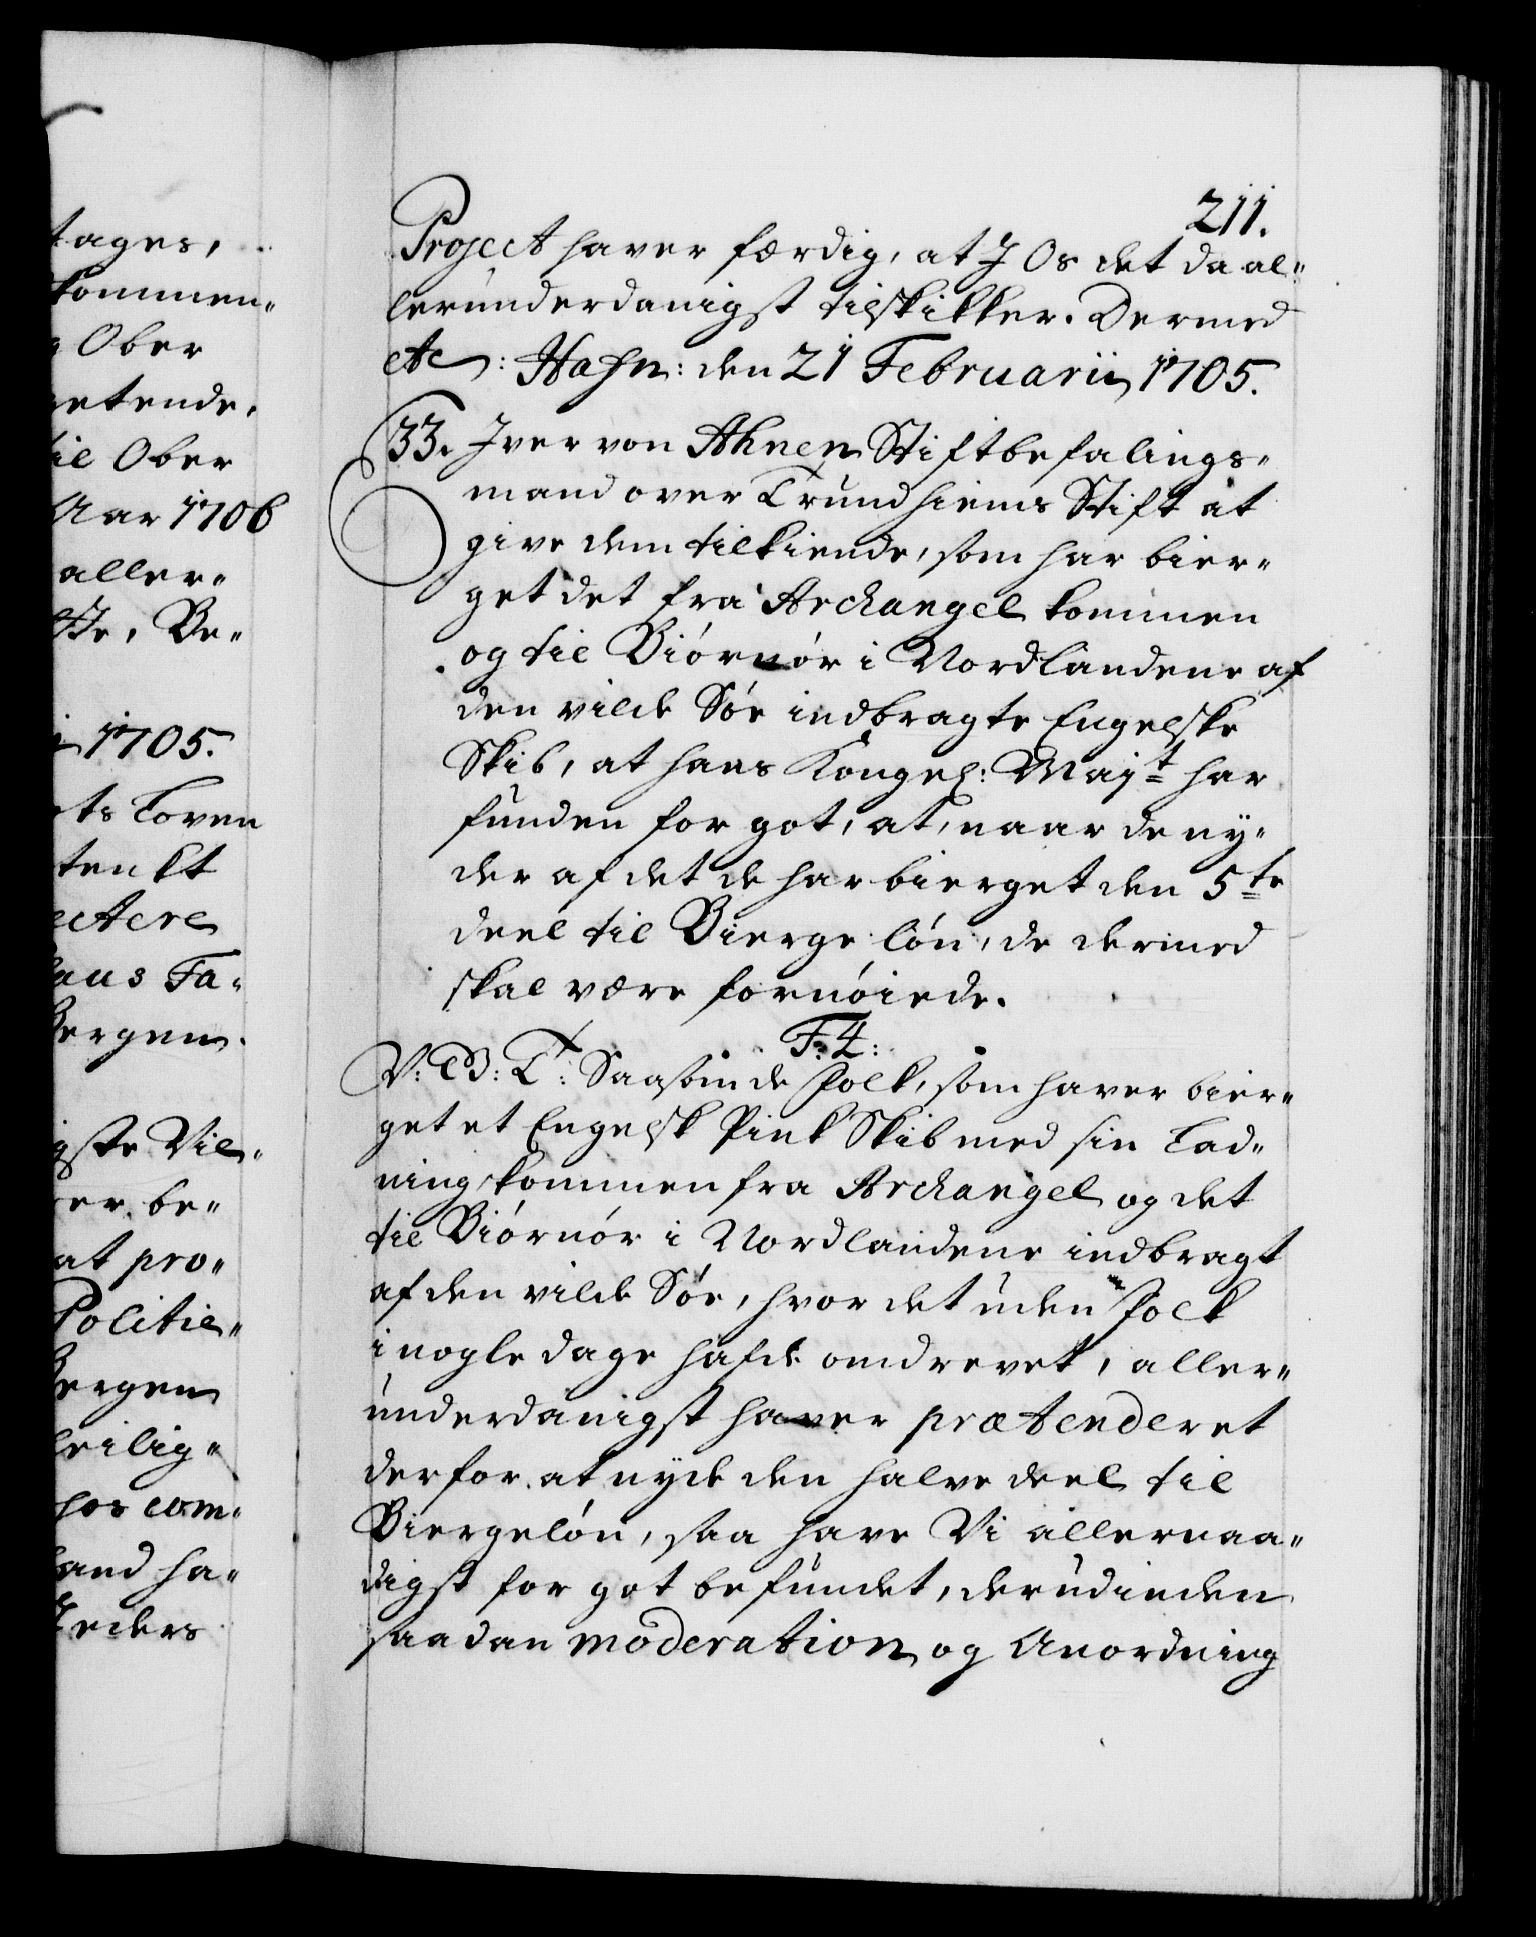 tages,
kommen„
Ober
retende,
til Ober
Aar 1706
aller„
Be„
1705.
ts Loven
tenkt
ectere
aus Fa„
Bergen.
igste Vil„
er be„
at pro„
Politie„
Bergen
leilig„
hos com„
and ha„
Steders
211.
Project haver færdig, at J Os det da al„
lerunderdanigst tilskikker. Dermed
etc: Hafn: den 21 Februarii 1705.
33. Jver von Ahnen Stiftbefalings„
mand over Trundhiems Stift at
give dem tilkiende, som har bier„
get det fra Archangel kommen
og til Biórnór i Nordlandene af
den vilde Sóe indbragte Engelske
Skib, at hans Kongel: Majt har
funden for got, at, naar de ny„
der af det de har bierget den 5te
deel til Bierge lón, de dermed
skal være fornóiede.
F. 4:
V: G: T: Saasom de Folk, som haver bier„
get et Engelsk Pink Skib med sin Lad„
ning kommen fra Archangel og det
til Biórnór i Nordlandene indbragt
af den vilde Sóe, hvor det uden Folk
i nogle dage hafde omdrevet, aller„
underdanigst haver prætenderet
derfor at nyde den halve deel til
Biergelón, saa have Vi allernaa„
digst for got befundet, derudinden
saadan moderation og Anordning